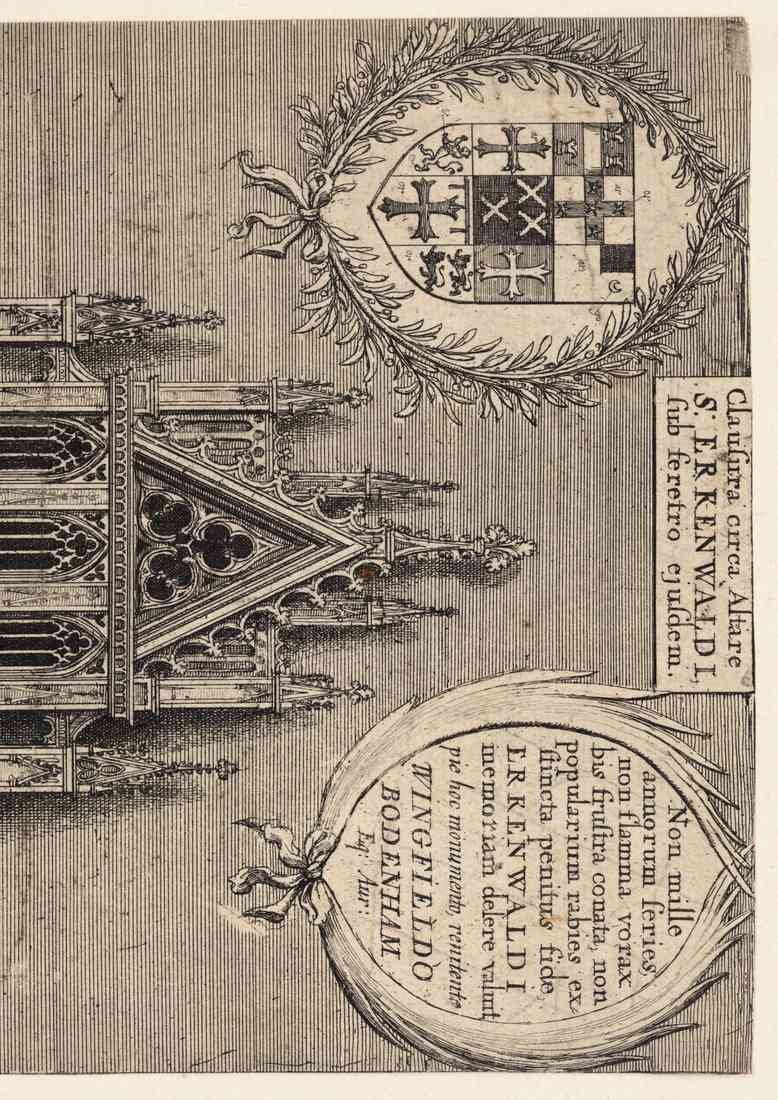 Clauſura circa Altare
S. ERKENWALDI,
ſub feretro ejuſdem.
Non mille
annorum ſeries,
non flamma vorax
bis fruſtra conata, non
popularium rabies ex=
ſtincta penitus fide,
ERKENWALDI
memoriam delere valuit
pie hoc monumento, renitente
WINGFIELDO
BODENHAM
Eq: Aur: